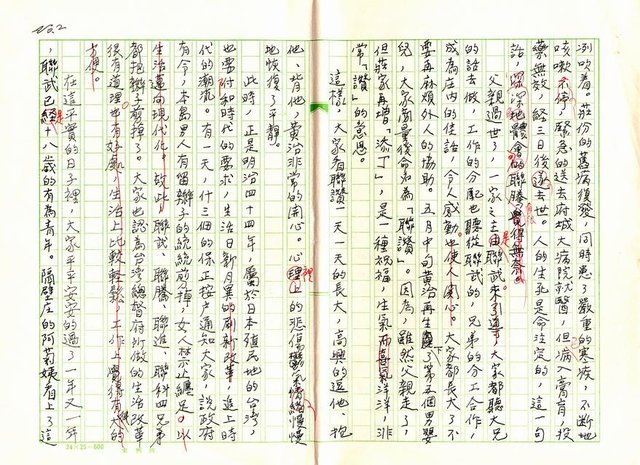 冽吹着。莊份的舊病復發,同時患了嚴重的寒疾,不斷地
咳嗽不停,緊急的送去府城大病院就醫,但病入膏肓,投
藥無效,經三日後逝去世。人的生死是命注定的,這一句
話,深深地體會的聯騰覺得無奈。
父親過世了,一家之主由聯試來了事,大家都聽大兄
的話去做,工作的分配也聽從聯試的,兄弟的分工合作,
成為庄內的佳話,令人感動也使人開心。大家都長大了不
要再麻煩外人的協助。五月中旬黃治再生下了第五個男嬰
兒,大家商量後命名為「聯讚」。因為,雖然父親走了,
但莊家再增「添丁」,是一種祝福,生氣而喜氣洋洋,非
常「讚」的意思。
這樣,大家看聯讚一天一天的長大,高興的逗他、抱
他、背他,黃治非常的開心。心理上的悲傷情緒慢慢
地恢復了平靜。
此時,正是明治四十四年,屬於日本殖民地的台灣,
也要附和時代的要求,生活日新月異的刷新改革,追上時
代的潮流。有一天,什三個的保正挨戶通知大家,說政府
有令,本島男人有留辮子的統統剪掉,女人禁止纏足。以
生活邁向現代化。故此,聯試、聯騰、聯進、聯科四兄弟
都把辮子剪掉了。大家也認為台灣總督府所做的生活改革
很有道理也有好感,生活上比較輕鬆,工作上覺得有大的
方便。
在這平實的日子裡,大家平平安安的過了一年又一年
,聯試已經是十八歲的有為青年。隔壁庄的阿莉姨看上了這
24×25=600